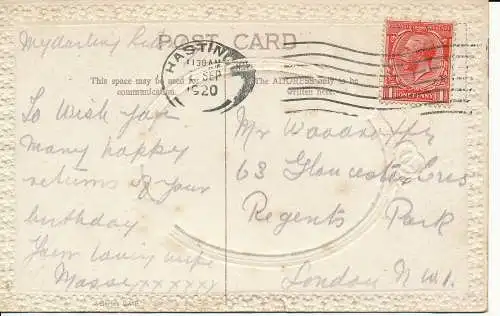 POST CARD
My darling
HASTINGS
11 30 AM
SEP
1920
This space may be used for
communication.
The ADDRESS only to be
written here.
ONE PENNY
To Wish you
Many happy
returns of your
birthday
Your loving wife
xxxxxx
Mr
63 Gloucester Cres
Regents Park
London N.W.1.